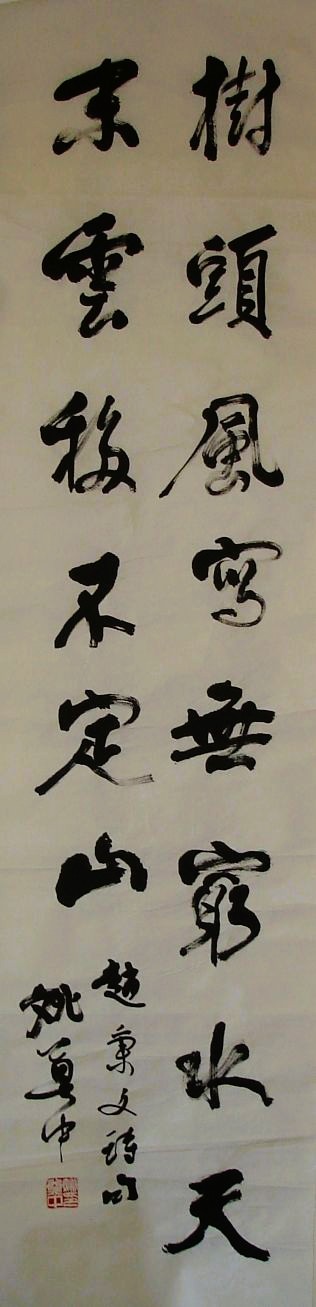 樹頭風寫無窮水天
末雲移不定山
趙秉文詩句
姚奠中